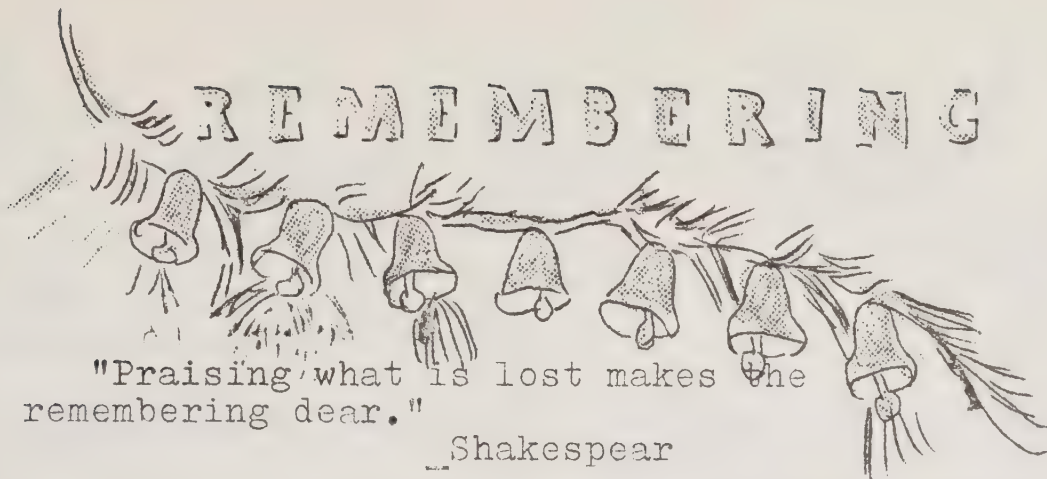 REMEMBERING
"Praising what is lost makes the
remembering dear."
_Shakespear